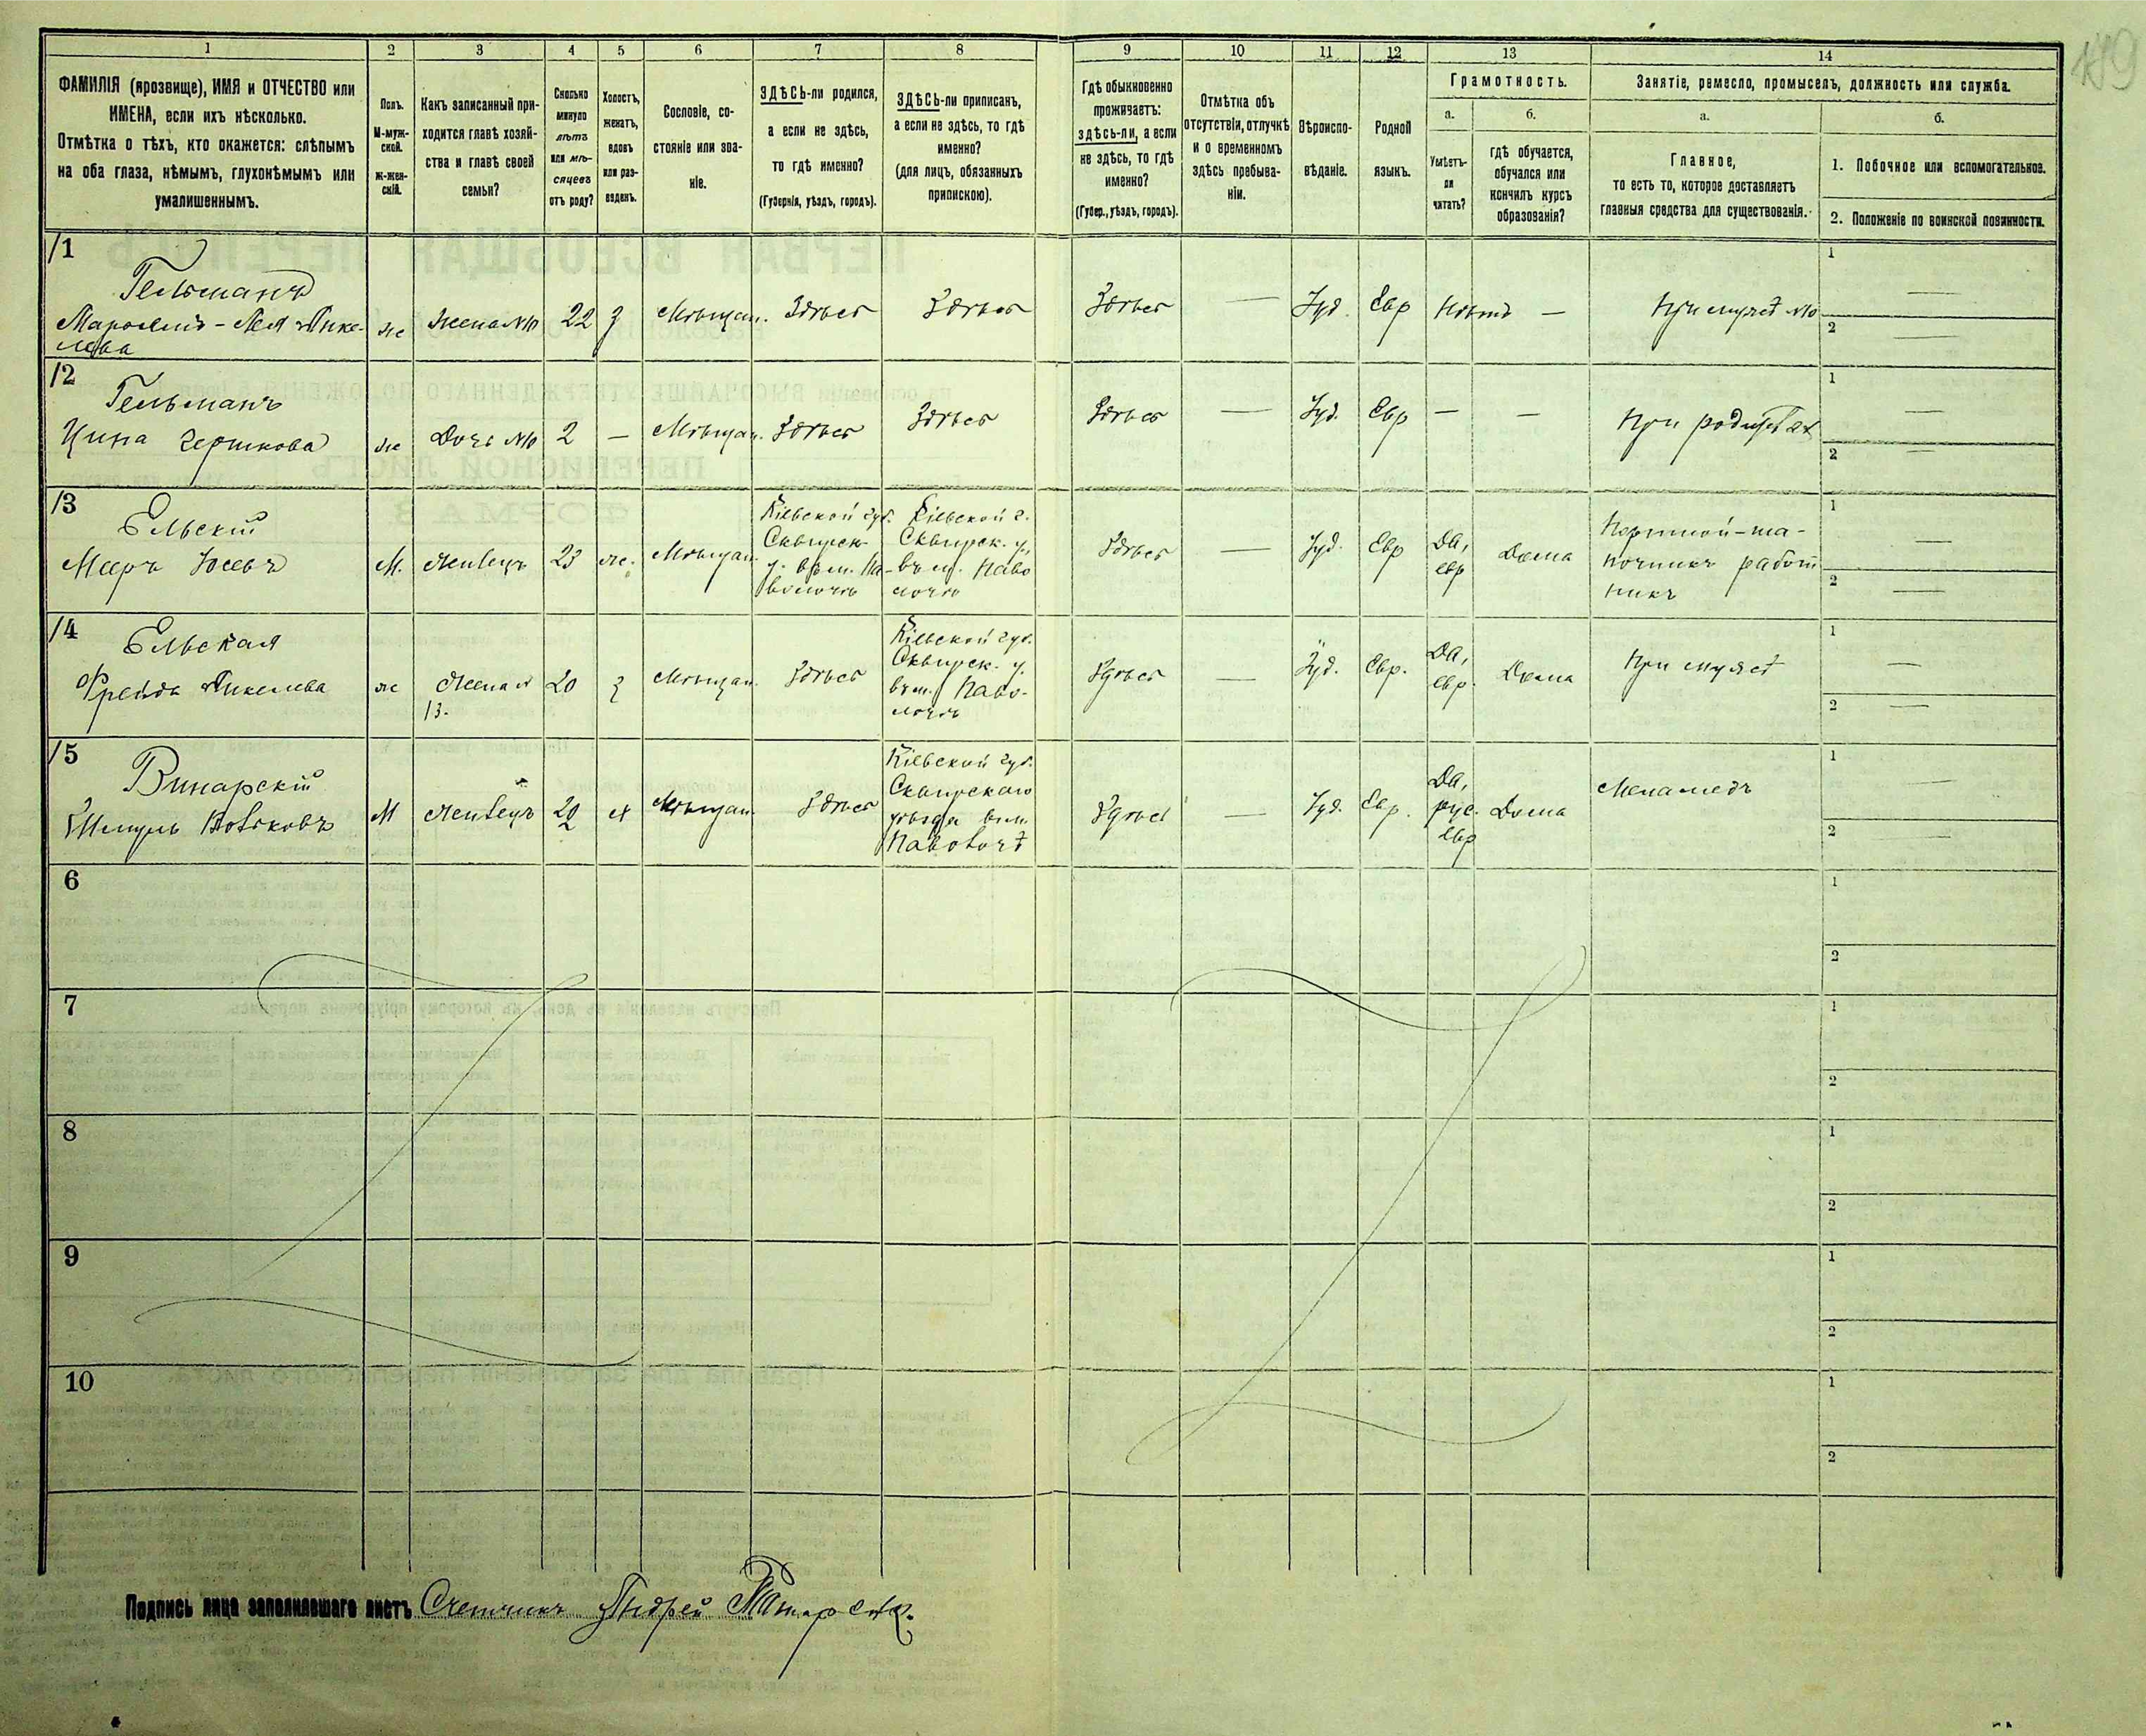 149
1 2 3 4 5 6 7 8 9 10 11 12 13 14
ФАМИЛІЯ (прозвище), ИМЯ и ОТЧЕСТВО или
ИМЕНА, если ихъ нѣсколько.
Отмѣтка о тѣхъ, кто окажется: слѣпымъ
на оба глаза, нѣмымъ, глухонѣмымъ или
умалишеннымъ.
Полъ.
М-муж-
ской.
Ж-жен-
скій.
Какъ записанный при-
ходится главѣ хозяй-
ства и главѣ своей
семьи?
Сколько
минуло
лѣтъ
или мѣ-
сяцевъ
отъ роду?
Холостъ,
женатъ,
вдовъ
или раз-
веденъ.
Сословіе, со-
стояніе или зва-
ніе.
ЗДѢСЬ-ли родился,
а если не здѣсь,
то гдѣ именно?
(Губернія, уѣздъ, городъ).
ЗДѢСЬ-ли приписанъ,
а если не здѣсь, то гдѣ
именно?
(для лицъ, обязанныхъ
припискою).
Гдѣ обыкновенно
проживаетъ:
здѣсь-ли, а если
не здѣсь, то гдѣ
именно?
(Губер., уѣздъ, городъ).
Отмѣтка объ
отсутствіи, отлучкѣ
и о временномъ
здѣсь пребыва-
ніи.
Вѣроиспо-
вѣданіе.
Родной
языкъ.
Грамотность.
а.
Умѣетъ-
ли
читать?
б.
гдѣ обучается,
обучался или
кончилъ курсъ
образованія?
Занятіе, ремесло, промыселъ, должность или служба.
а.
Главное,
то есть то, которое доставляетъ
главныя средства для существованія.
б.
1. Побочное или вспомогательное.
2. Положеніе по воинской повинности.
/1
Гельманъ
ж
Жена №10
22
з
Мѣщан.
Здѣсь
Здѣсь
Здѣсь
—
Іуд.
Евр
Нѣтъ
—
При мужѣ №10
1 —
2 —
/2
Гельманъ
Цина Гершкова
ж
Дочь №10
2
—
Мѣщан.
Здѣсь
Здѣсь
Здѣсь
—
Іуд.
Евр
—
—
При родителях
1 —
2 —
/3
Ельскій
Мееръ Іосевъ
М.
Жилецъ
23
ж.
Мѣщан.
Кіевской губ.
Сквирск.
у. въ м. Па-
волочѣ
Кіевской г.
Сквирск. у,
въ м. Паво
лочѣ
Здѣсь
—
Іуд.
Евр
Да,
евр
Дома
Портной-ша-
почникъ работ
никъ
1 —
2 —
/4
Ельская
Фрейда
ж
Жена №
13.
20
з
Мѣщан.
Здѣсь
Кіевской губ.
Сквирск. у.
въ м. Паво-
лочѣ
Здѣсь
—
Іуд.
Евр.
Да,
евр.
Дома
При мужѣ
1 —
2 —
/5
Винарскій
Шмуль
М
Жилецъ
20
х
Мѣщан.
Здѣсь
Кіевской губ.
Сквирскаго
уѣзда въ м.
Паволочѣ
Здѣсь
—
Іуд.
Евр.
Да,
рус.
евр
Дома
Меламедъ
1 —
2 —
6
1
2
7
1
2
8
1
2
9
1
2
10
1
2
Подпись лица заполнившаго листъ Счетчикъ Андрей